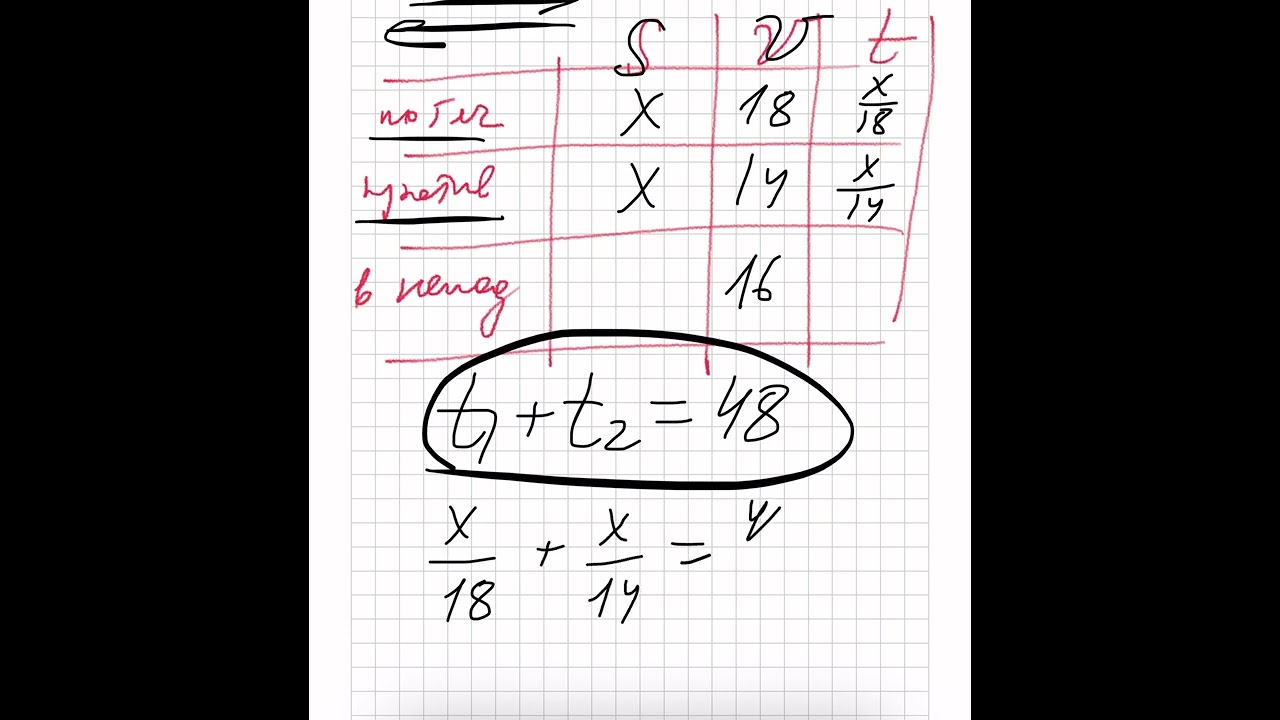 S v t
по теч X 18 x/18
против X 14 x/14
в непод 16
t₁ + t₂ = 48
x/18 + x/14 = 4